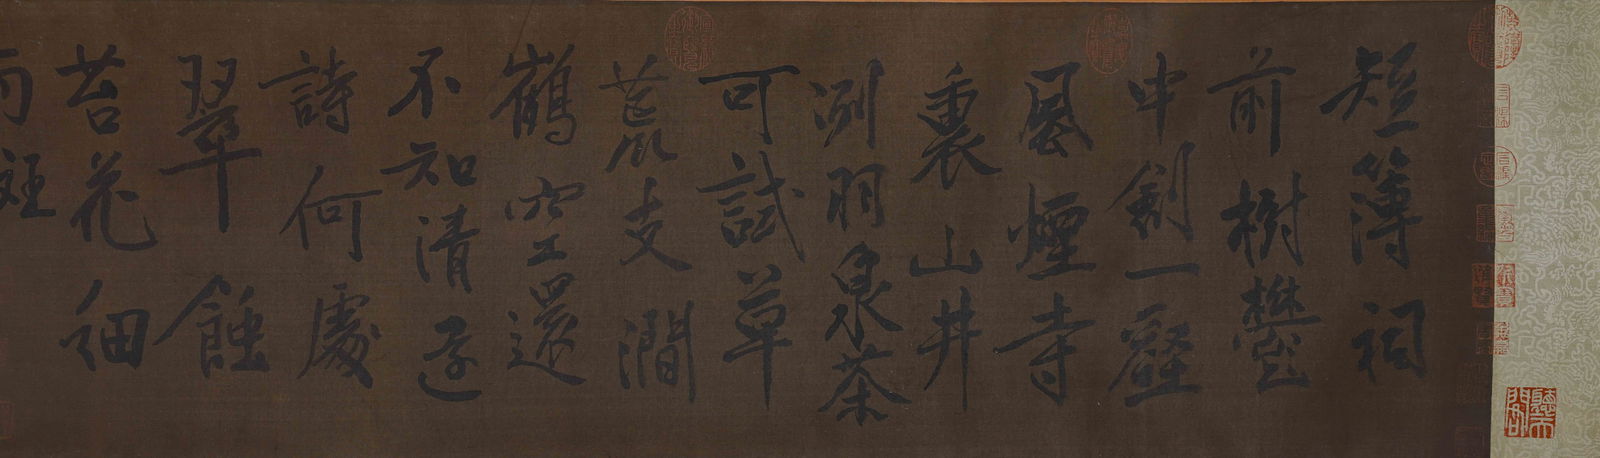 短簿祠
前樹鬱
中劍一壑
風煙寺
裏山井
洌羽泉茶
可試草
荒支澗
鶴空還
不知清遠
詩何處
翠蝕
苔花細
雨斑